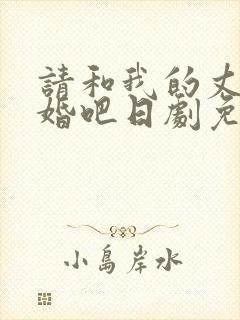 請和我的丈
婚吧日劇免
小島岸水